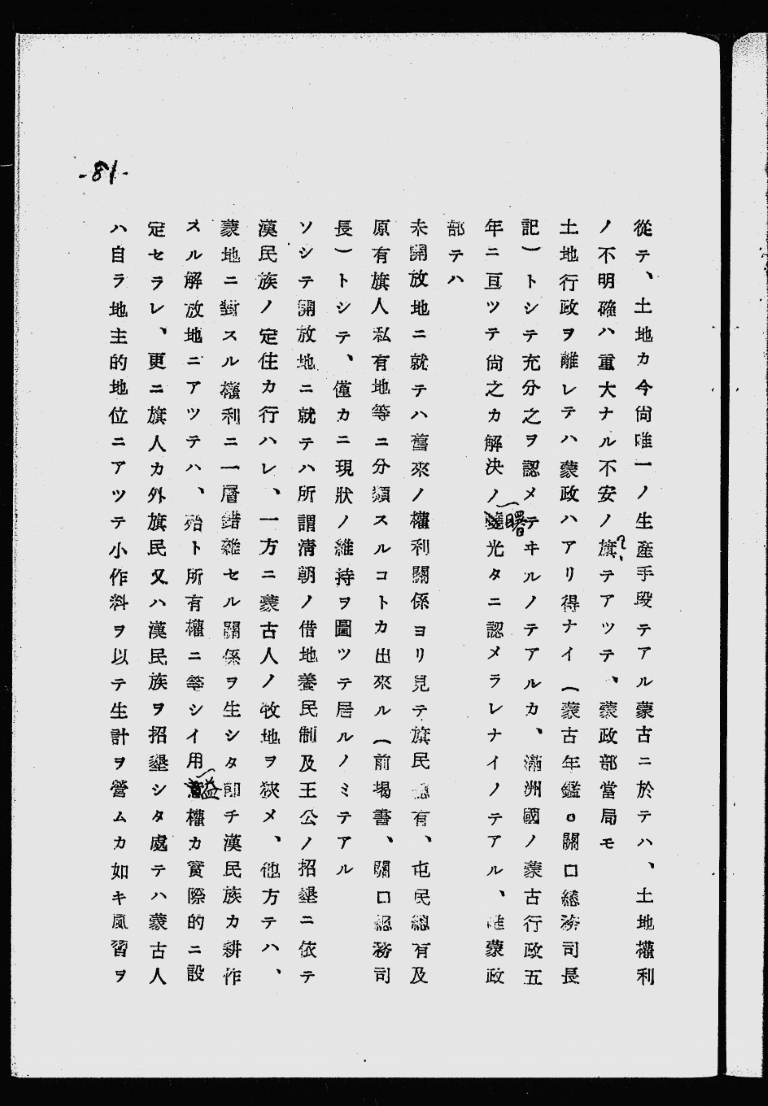 -81-
從テ、土地カ今尙唯一ノ生産手段テアル蒙古ニ於テハ、土地權利
ノ不明確ハ重大ナル不安ノ旗?テアツテ、蒙政部當局モ
土地行政ヲ離レテハ蒙政ハアリ得ナイ(蒙古年鑑。關口總務司長
記)トシテ充分之ヲ認メテヰルノテアルカ、滿洲國ノ蒙古行政五
年ニ亙ツテ尙之カ解決ノ曙光タニ認メラレナイノテアル、唯蒙政
部テハ
未開放地ニ就テハ舊來ノ權利關係ヨリ見テ旗民總有、屯民總有及
原有旗人私有地等ニ分類スルコトカ出來ル(前揭書、關口總務司
長)トシテ、僅カニ現狀ノ維持ヲ圖ツテ居ルノミテアル
ソシテ開放地ニ就テハ所謂淸朝ノ借地養民制及王公ノ招墾ニ依テ
漢民族ノ定住カ行ハレ、一方ニ蒙古人ノ牧地ヲ狹メ、他方テハ、
蒙地ニ對スル權利ニ一層錯雜セル關係ヲ生シタ卽チ漢民族カ耕作
スル解放地ニアツテハ、殆ト所有權ニ等シイ用益權カ實際的ニ設
定セラレ、更ニ旗人カ外旗民又ハ漢民族ヲ招墾シタ處テハ蒙古人
ハ自ラ地主的地位ニアツテ小作料ヲ以テ生計ヲ營ムカ如キ風習ヲ